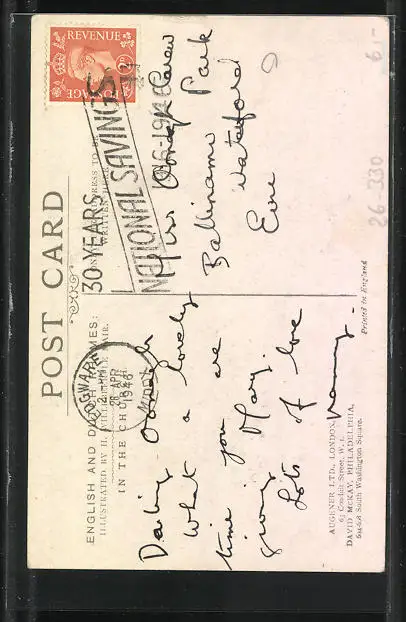 POST CARD
ENGLISH AND DUTCH RHYMES:
ILLUSTRATED BY H. WILLEBEEK LE MAIR.
IN THE CHURCH.
Darling Oonagh
What a lovely
time you are
giving Mary.
Lots of love
AUGENER LTD., LONDON,
63 Conduit Street, W. 1.
DAVID McKAY, PHILADELPHIA,
604-608 South Washington Square.
Printed in England
ONLY ADDRESS TO BE
WRITTEN HERE
Miss Oonagh Carew
Ballinamona Park
Waterford
Eire
REVENUE
POSTAGE
30 YEARS
NATIONAL SAVINGS
1916-1946
28 APR
1946
MIDDX
26-330
6,-